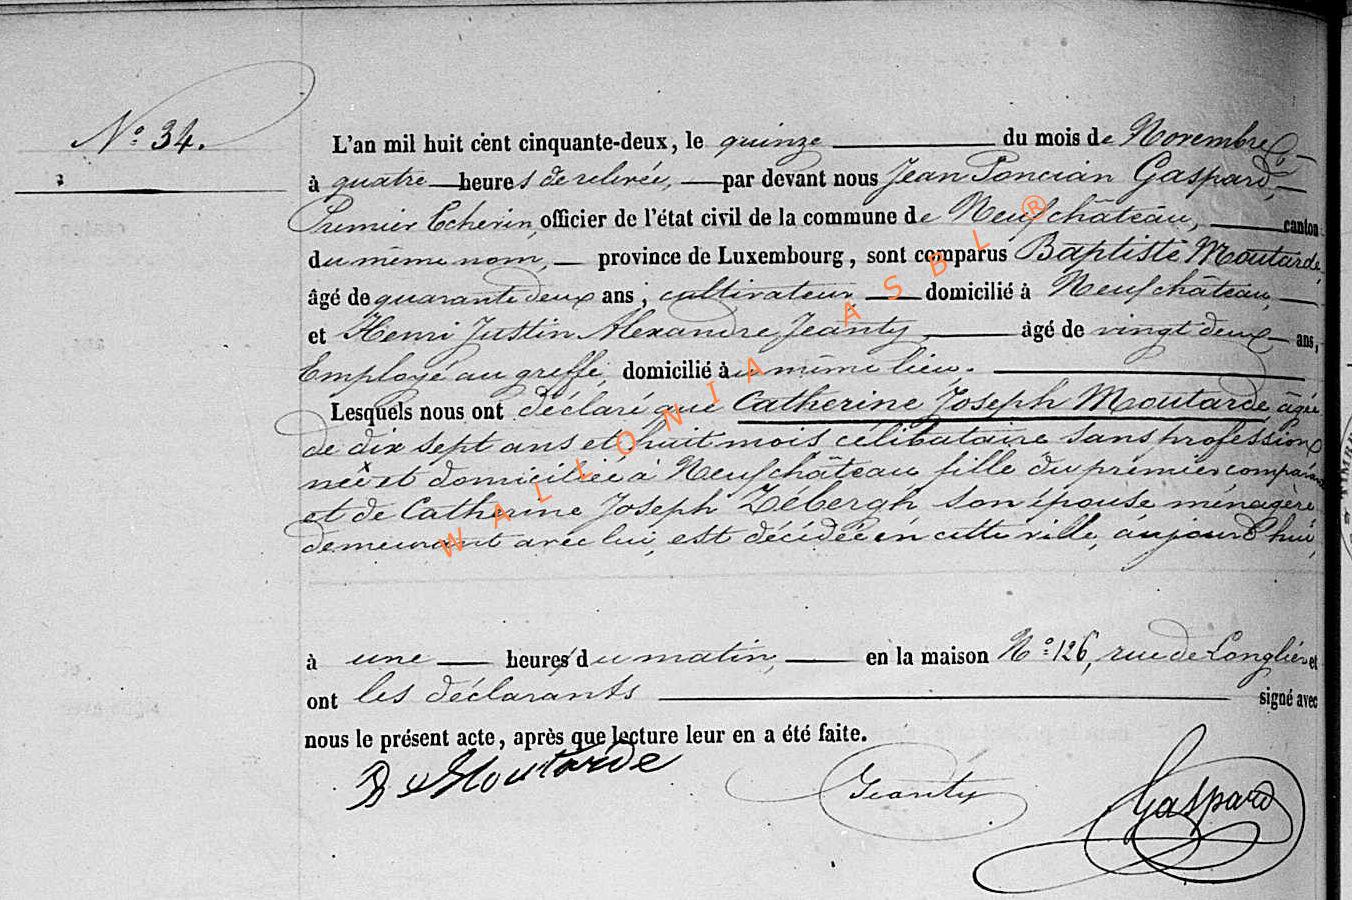 N° 34.
L'an mil huit cent cinquante-deux, le quinze du mois de Novembre,
à quatre heures de relevée, par devant nous Jean Poncian Gaspard,
Premier Echevin, officier de l'état civil de la commune de Neufchâteau, canton
du même nom, province de Luxembourg, sont comparus Baptiste Moutarde,
âgé de quarante deux ans, cultivateur, domicilié à Neufchâteau,
et Henri Justin Alexandre Jeanty, âgé de vingt deux ans,
Employé au greffe, domicilié au même lieu.
Lesquels nous ont déclaré que Catherine Joseph Moutarde âgée
de dix sept ans et huit mois célibataire sans profession
née et domiciliée à Neufchâteau fille du premier comparant
et de Catherine Joseph Zébergh son épouse ménagère
demeurant avec lui, est décédée en cette ville, aujourd'hui,
à une heures du matin, en la maison N° 126, rue de Longlier et
ont les déclarants signé avec
nous le présent acte, après que lecture leur en a été faite.
B Moutarde Jeanty Gaspard
WALLONIA ASBL ®